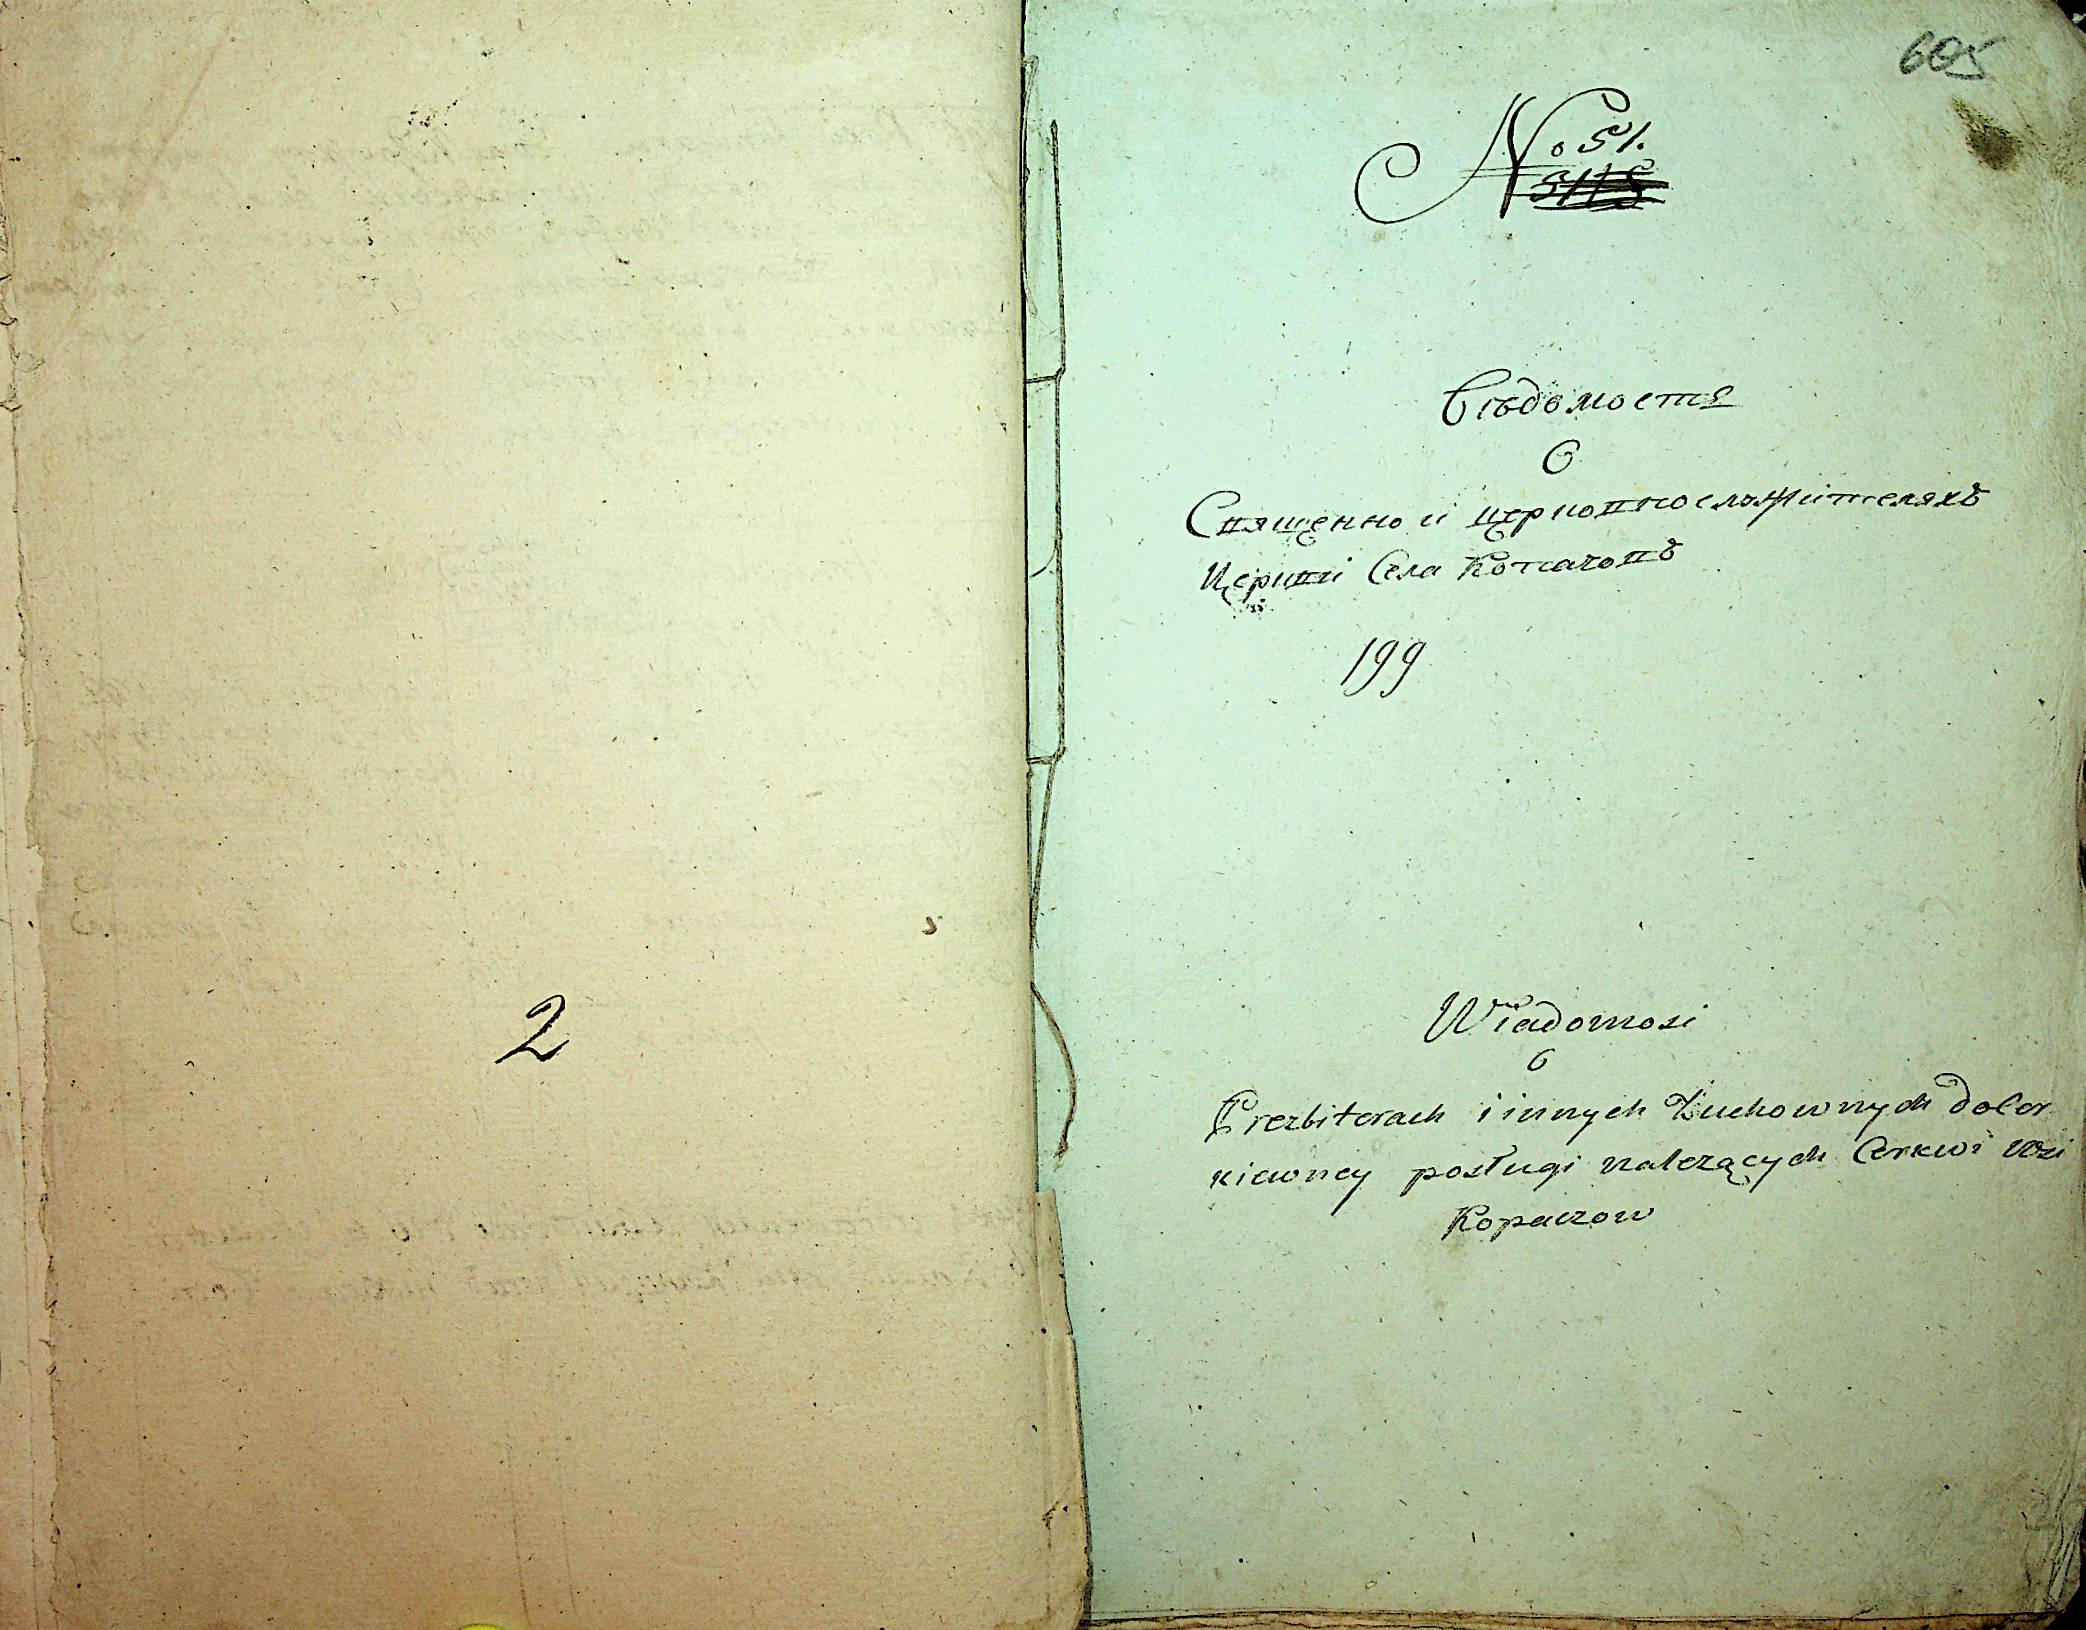 2
605
No 51.
Вѣдомость
О
Священно и церковнослужителяхъ
Церкви Села Копачовъ
199
Wiadomosi
o
Prezbiterach i innych Duchownych do Cer
kiewney posługi nalezących Cerkwi Wsi
Kopaczow